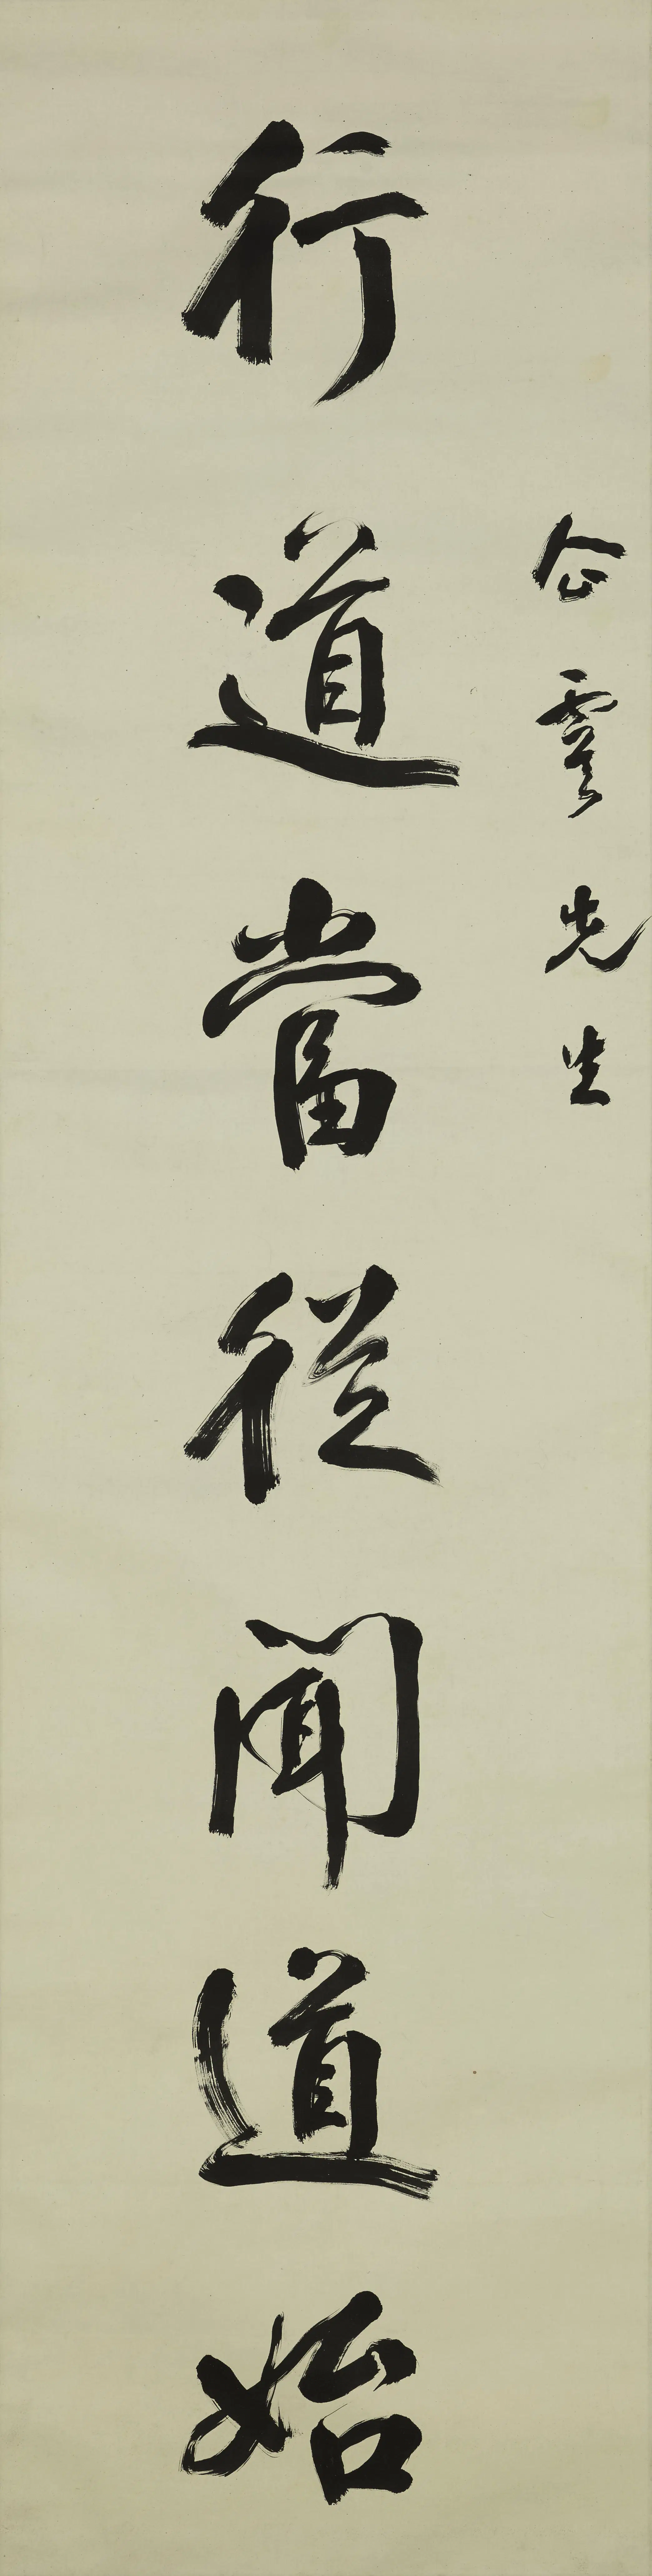 企雲先生
行道當從聞道始